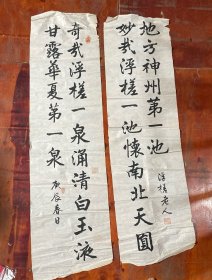 奇哉浮槎一泉涌清白玉液
甘露華夏第一泉
庚辰春日
妙哉浮槎一池懷南北天圓
地方神州第一池
浮槎老人